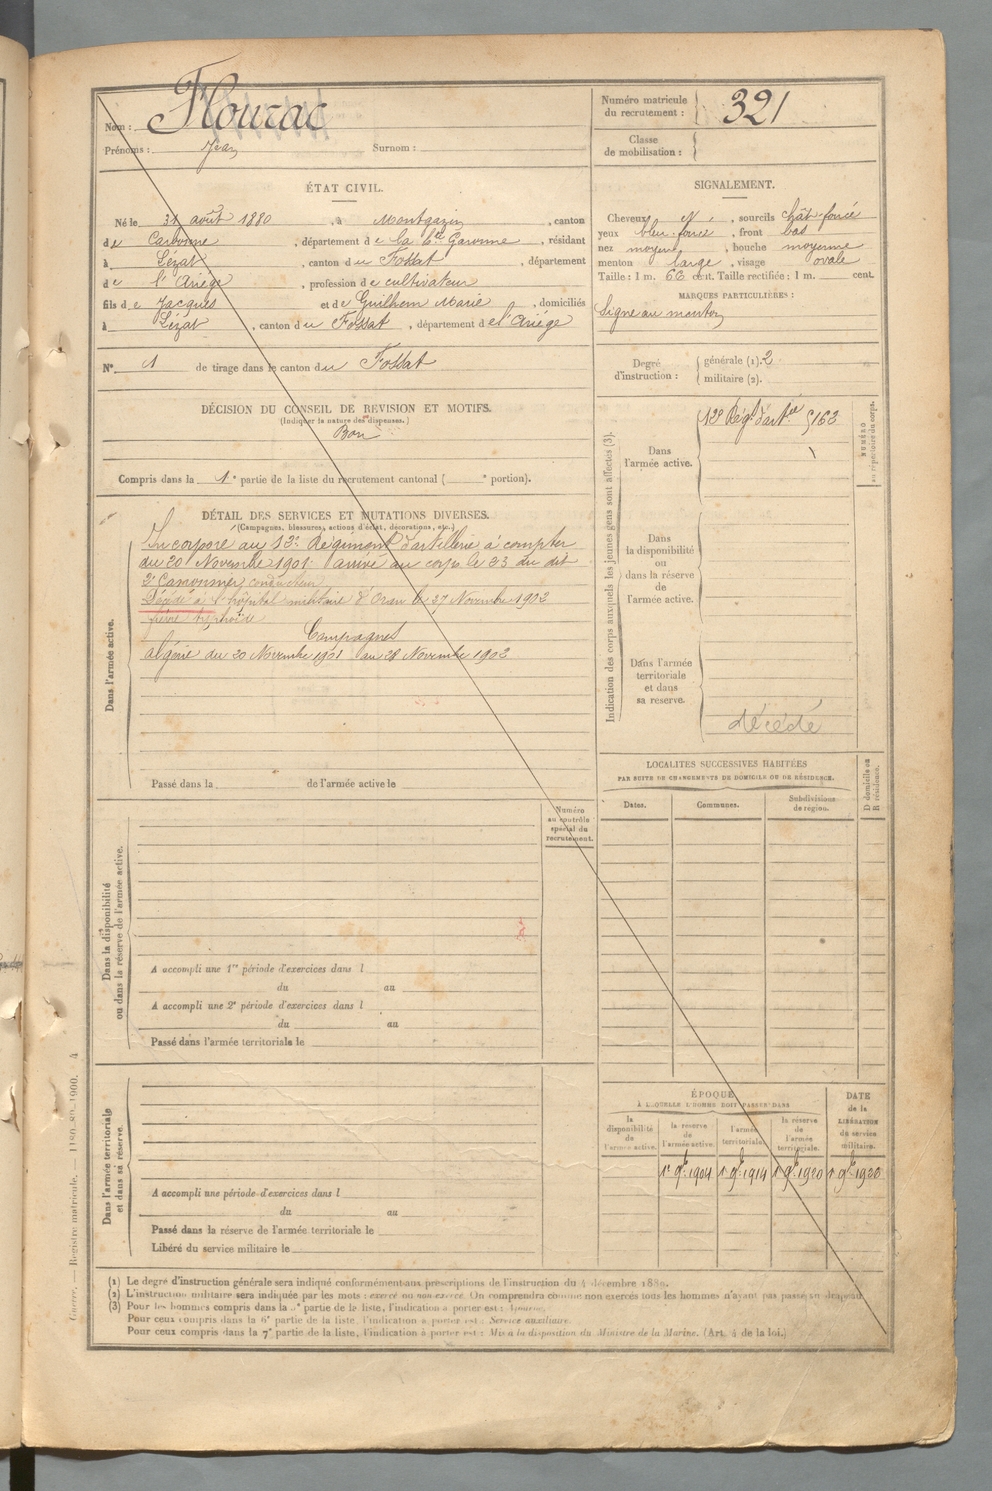 Nom : Flourac
Prénoms : Jean Surnom :
Numéro matricule du recrutement : 321
Classe de mobilisation :
ÉTAT CIVIL.
Né le 31 août 1880, à Montgazin, canton
de Carbonne, département de la Hte Garonne, résidant
à Lézat, canton du Fossat, département
de l'Ariège, profession de cultivateur
fils de Jacques et de Guilhem Marie, domiciliés
à Lézat, canton du Fossat, département de l'Ariège
N° 1 de tirage dans le canton du Fossat
SIGNALEMENT.
Cheveux , sourcils chât-foncé
yeux bleu-foncé, front bas
nez moyen, bouche moyenne
menton large, visage ovale
Taille : 1 m. 66 cent. Taille rectifiée : 1 m. cent.
MARQUES PARTICULIÈRES :
Signe au menton
Degré d'instruction : générale (1). 2
militaire (2).
DÉCISION DU CONSEIL DE REVISION ET MOTIFS.
(Indiquer la nature des dispenses.)
Bon
Compris dans la 1e partie de la liste du recrutement cantonal ( e portion).
DÉTAIL DES SERVICES ET MUTATIONS DIVERSES.
(Campagnes, blessures, actions d'éclat, décorations, etc.)
Dans l'armée active.
Incorporé au 12e Régiment d'artillerie à compter
du 20 Novembre 1901 arrivé au corps le 23 du dit
2e Canonnier conducteur
Décédé à l'hôpital militaire d'Oran le 27 Novembre 1902
fièvre typhoïde
Campagnes
Algérie du 20 Novembre 1901 au 28 Novembre 1902
Passé dans la de l'armée active le
Indication des corps auxquels les jeunes gens sont affectés (3).
Dans l'armée active.
12e Régt d'artie 5162
NUMÉRO au répertoire du corps.
Dans la disponibilité ou dans la réserve de l'armée active.
Dans l'armée territoriale et dans sa réserve.
décédé
LOCALITÉS SUCCESSIVES HABITÉES
PAR SUITE DE CHANGEMENTS DE DOMICILE OU DE RÉSIDENCE.
Dates. Communes. Subdivisions de région. D domicile ou R résidence.
Numéro au contrôle spécial du recrutement.
Dans la disponibilité ou dans la réserve de l'armée active.
A accompli une 1re période d'exercices dans l
du au
A accompli une 2e période d'exercices dans l
du au
Passé dans l'armée territoriale le
Dans l'armée territoriale et dans sa réserve.
A accompli une période d'exercices dans l
du au
Passé dans la réserve de l'armée territoriale le
Libéré du service militaire le
ÉPOQUE
À LAQUELLE L'HOMME DOIT PASSER DANS
la disponibilité de l'armée active.
la réserve de l'armée active.
l'armée territoriale.
la réserve de l'armée territoriale.
DATE de la LIBÉRATION du service militaire.
1r 9bre 1904 1r 9bre 1914 1r 9bre 1920 1r 9bre 1926
(1) Le degré d'instruction générale sera indiqué conformément aux prescriptions de l'instruction du 4 décembre 1889.
(2) L'instruction militaire sera indiquée par les mots : exercé ou non exercé. On comprendra comme non exercés tous les hommes n'ayant pas passé au drapeau.
(3) Pour les hommes compris dans la 5e partie de la liste, l'indication à porter est :
Pour ceux compris dans la 6e partie de la liste, l'indication à porter est : Service auxiliaire.
Pour ceux compris dans la 7e partie de la liste, l'indication à porter est : Mis à la disposition du Ministre de la Marine. (Art. 4 de la loi.)
Guerre. — Registre matricule. — 1180-89-1900. 4